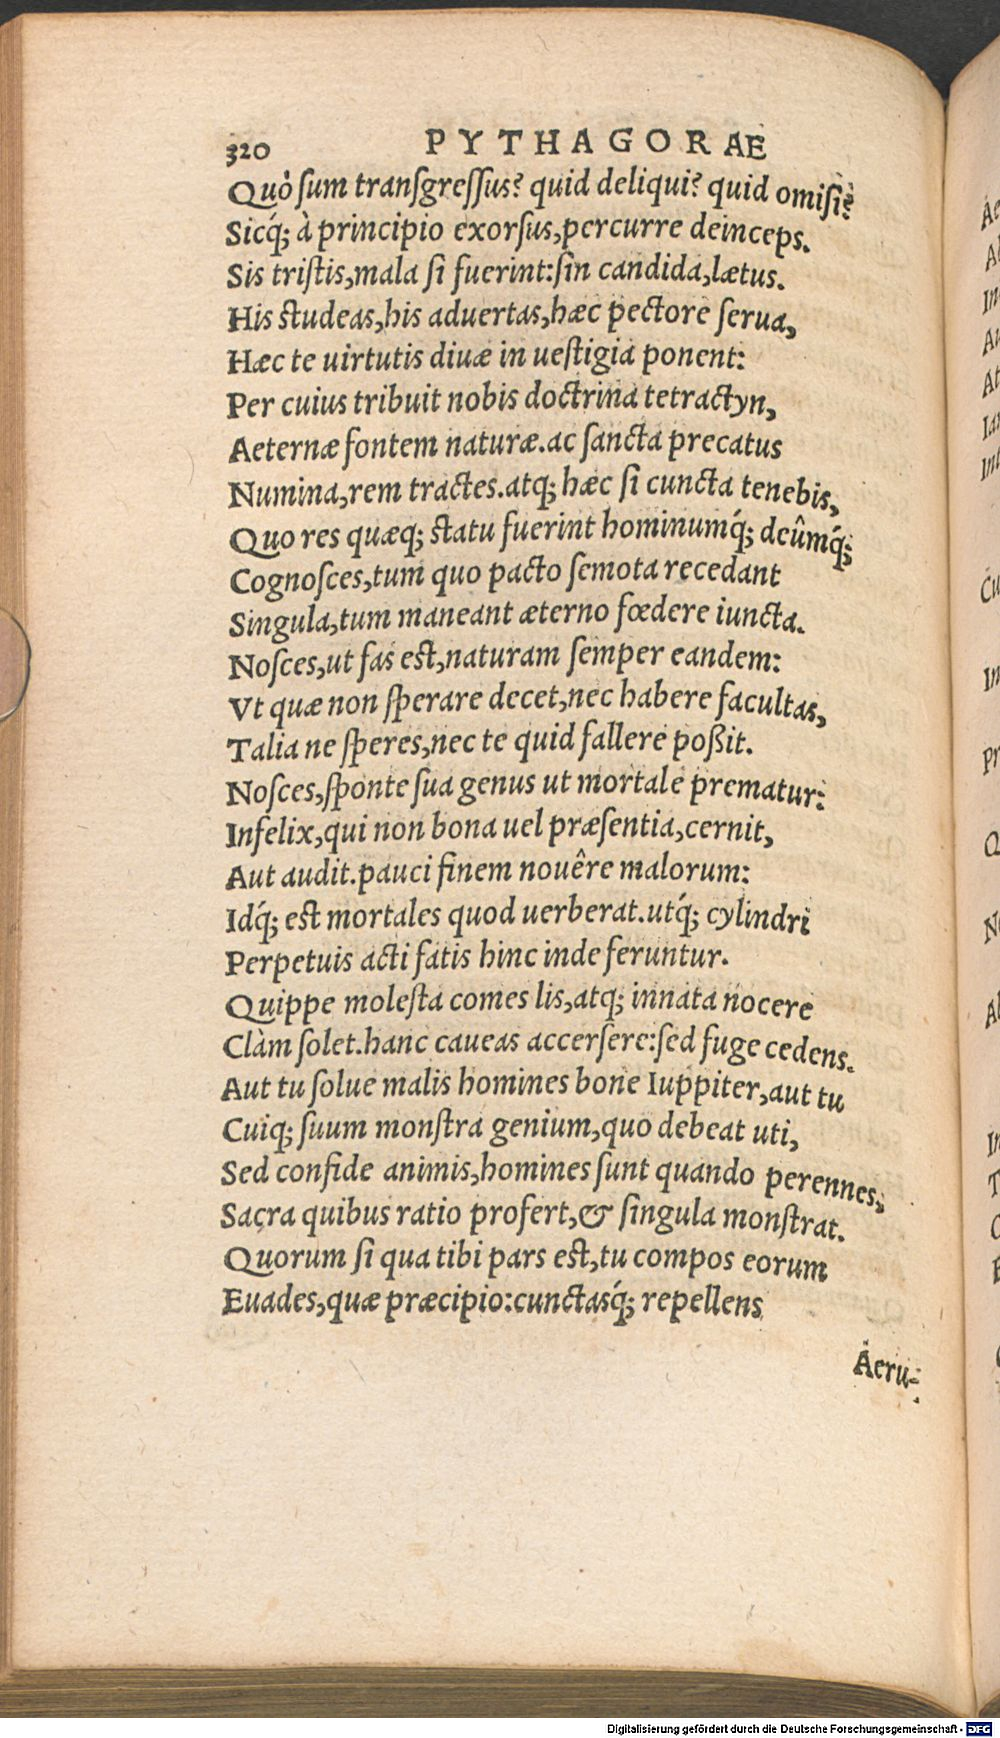 320 PYTHAGORAE
Quò sum transgressus? quid deliqui? quid omisi?
Sicq́; à principio exorsus, percurre deinceps.
Sis tristis, mala si fuerint: sin candida, lætus.
His studeas, his aduertas, hæc pectore serua,
Hæc te uirtutis diuæ in uestigia ponent:
Per cuius tribuit nobis doctrina tetractyn,
Aeternæ fontem naturæ. ac sancta precatus
Numina, rem tractes. atq; hæc si cuncta tenebis,
Quo res quæq; statu fuerint hominumq́; deûmq́;
Cognosces, tum quo pacto semota recedant
Singula, tum maneant æterno fœdere iuncta.
Nosces, ut fas est, naturam semper eandem:
Vt quæ non sperare decet, nec habere facultas,
Talia ne speres, nec te quid fallere poßit.
Nosces, sponte sua genus ut mortale prematur:
Infelix, qui non bona uel præsentia, cernit,
Aut audit. pauci finem nouêre malorum:
Idq́; est mortales quod uerberat. utq́; cylindri
Perpetuis acti fatis hinc inde feruntur.
Quippe molesta comes lis, atq; innata nocere
Clàm solet. hanc caueas accersere: sed fuge cedens.
Aut tu solue malis homines bone Iuppiter, aut tu
Cuiq; suum monstra genium, quo debeat uti,
Sed confide animis, homines sunt quando perennes,
Sacra quibus ratio profert, & singula monstrat.
Quorum si qua tibi pars est, tu compos eorum
Euades, quæ præcipio: cunctasq́; repellens
Aeru-
Digitalisierung gefördert durch die Deutsche Forschungsgemeinschaft - DFG